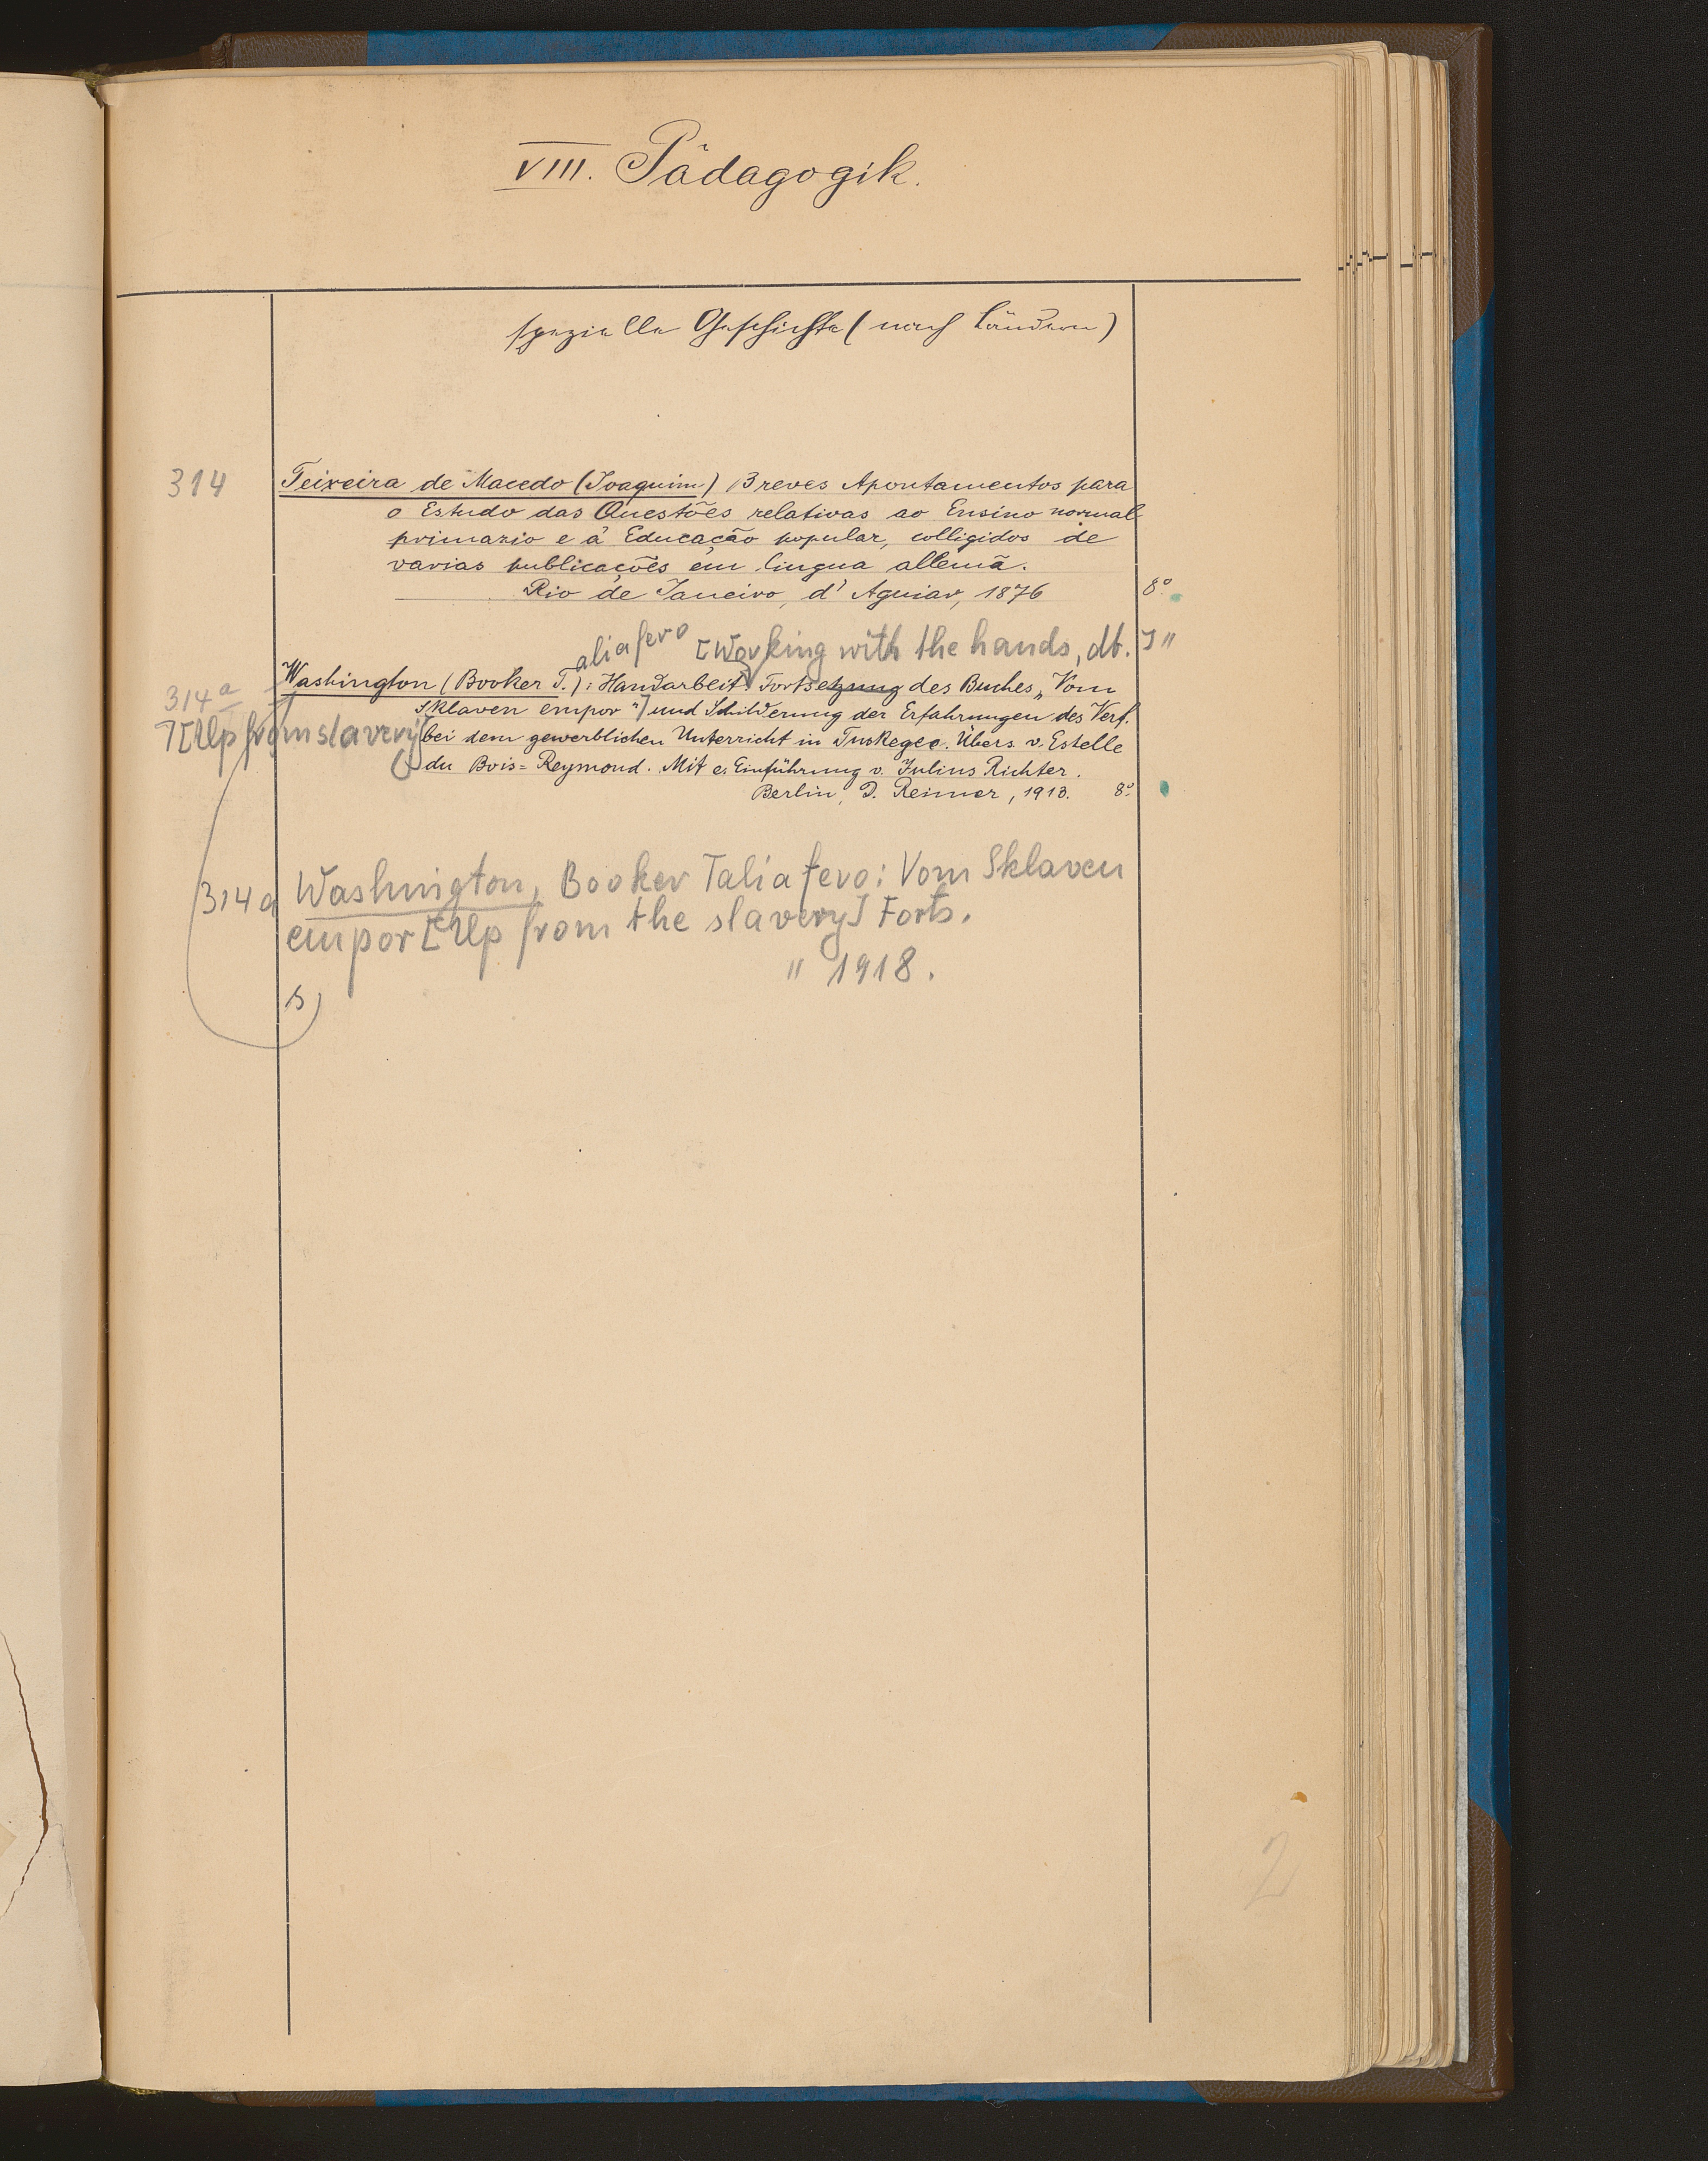 VIII. Pädagogik.
spezielle Geschichte (nach Ländern)
314 Teixeira de Macedo (Joaquim) Breves Apontamentos para
o Estudo das Questões relativas ao Ensino normal
primario e á Educação popular, colligidos de
varias publicações em lingua allemã.
Rio de Janeiro, d' Aguiar, 1876 8°.
aliafero [Working with the hands, dt.] "
314a Washington (Booker T.): Handarbeit. Fortsetzung des Buches „Vom
Sklaven empor") und Schilderung der Erfahrungen des Verf.
[Up from slavery] bei dem gewerblichen Unterricht in Tuskegee. Übers. v. Estelle
du Bois=Reymond. Mit e. Einführung v. Julius Richter.
Berlin, D. Reimer, 1913. 8°.
314a Washington, Booker Taliafero: Vom Sklaven
empor [Up from the slavery] Forts.
" 1918.
b)
2